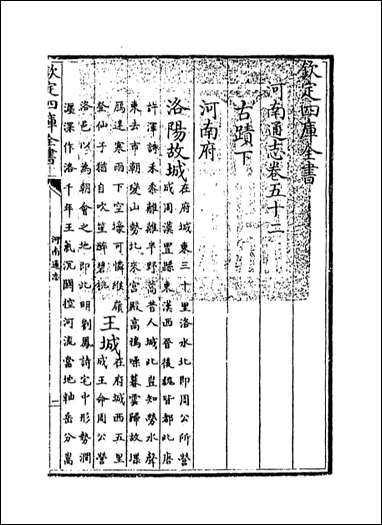 欽定四庫全書
河南通志卷五十二
古蹟下
河南府
洛陽故城在府城東三十里洛水北即周公所營
成周漢置縣東漢西晉後魏皆都此唐
許渾詩禾黍離離半野蒿昔人城此豈知勞水聲
東去市朝變山勢北來宮殿高鴉噪暮雲歸故堞
鴈迷寒雨下空壕可憐緱嶺
登仙子猶自吹笙醉碧桃
王城在府城西五里
成王命周公營
洛邑以為朝會之地即此明劉鳳詩宅中形勢澗
瀍深作洛千年王氣沉關控河流當地軸岳分嵩
欽定四庫全書
河南通志